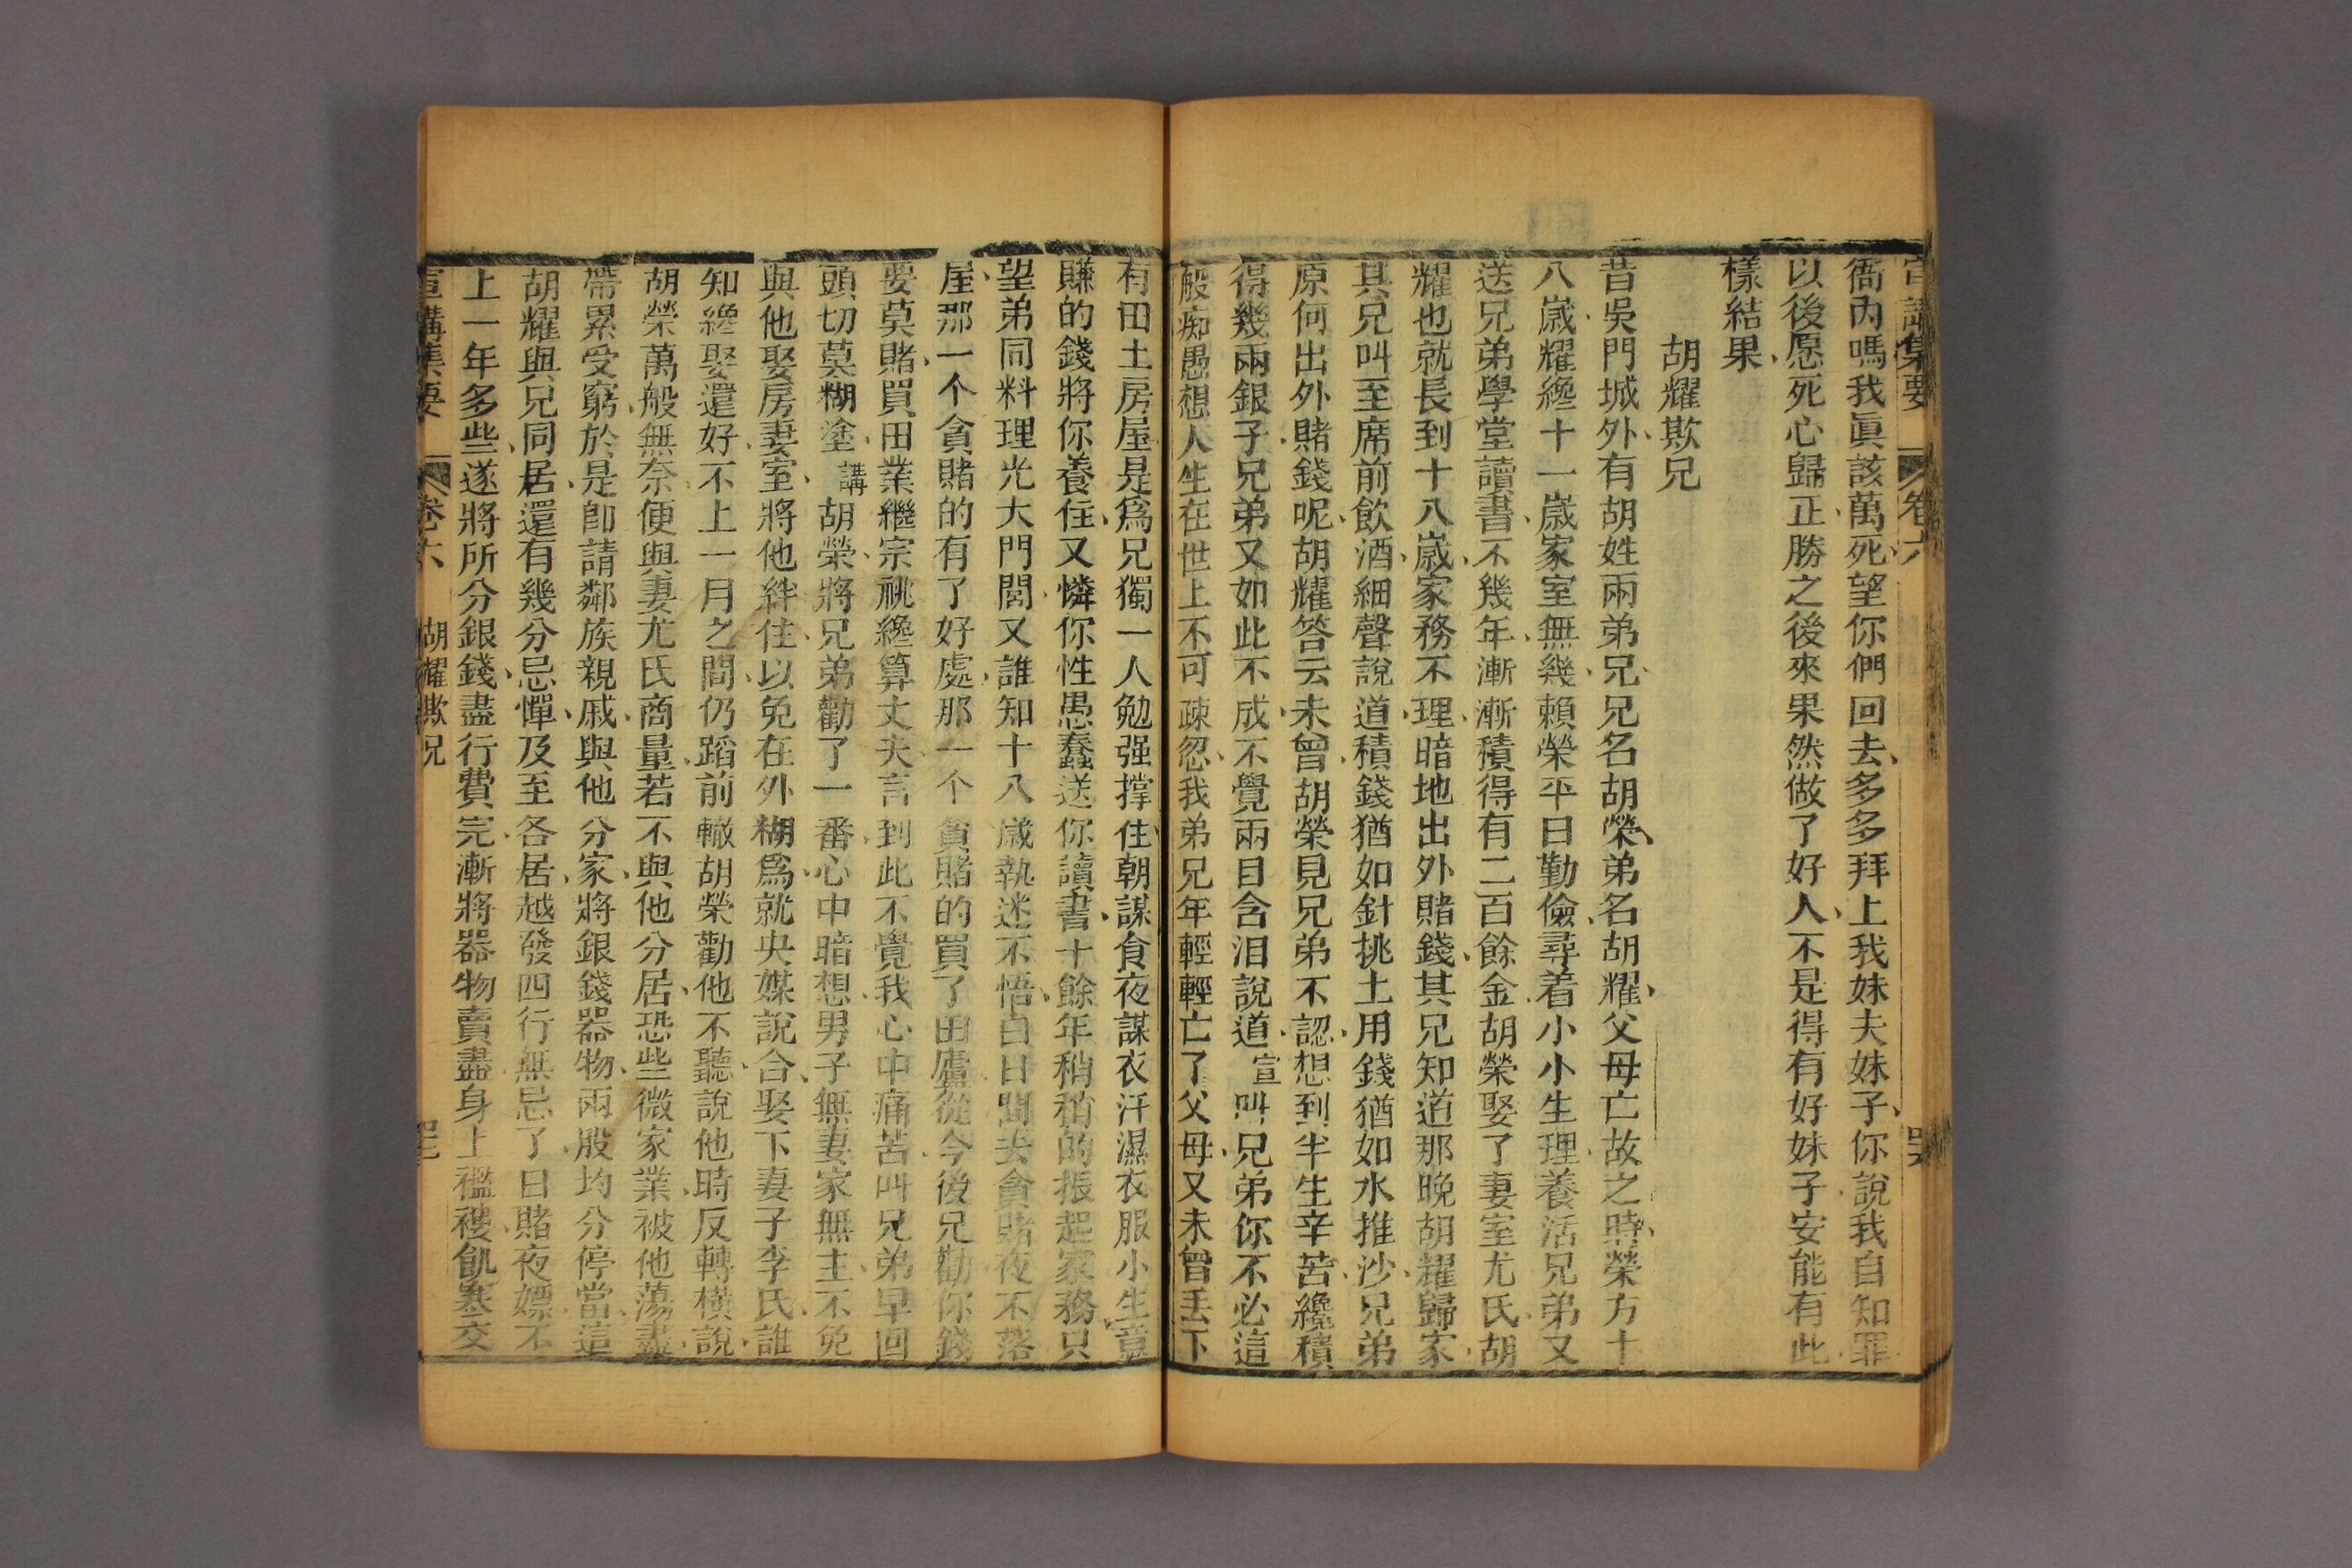 衙內嗎我眞該萬死望你們回去多多拜上我妹夫妹子你說我自知罪
以後愿死心歸正勝之後來果然做了好人不是得有好妹子安能有此
樣結果
胡耀欺兄
昔吳門城外有胡姓兩弟兄兄名胡榮弟名胡耀父母亡故之時榮方十
八歲耀纔十一歲家室無幾賴榮平日勤儉尋着小小生理養活兄弟又
送兄弟學堂讀書不幾年漸漸積得有二百餘金胡榮娶了妻室尤氏胡
耀也就長到十八歲家務不理暗地出外賭錢其兄知道那晚胡耀歸家
其兄叫至席前飲酒細聲說道積錢猶如針挑土用錢猶如水推沙兄弟
原何出外賭錢呢胡耀答云未曾胡榮見兄弟不認想到半生辛苦纔積
得幾兩銀子兄弟又如此不成不覺兩目含泪說道宣叫兄弟你不必這
般痴愚想人生在世上不可疎忽我弟兄年輕輕亡了父母又未曾丟下
有田土房屋是爲兄獨一人勉强撐住朝謀食夜謀衣汗濕衣服小生意
賺的錢將你養住又憐你性愚蠢送你讀書十餘年稍稍的振起家務只
望弟同料理光大門閭又誰知十八歲執迷不悟白日間去貪賭夜不落
屋那一个貪賭的有了好處那一个貪賭的買了田廬從今後兄勸你錢
要莫賭買田業繼宗祧纔算丈夫言到此不覺我心中痛苦叫兄弟早回
頭切莫糊塗講胡榮將兄弟勸了一番心中暗想男子無妻家無主不免
與他娶房妻室將他絆住以免在外糊爲就央媒說合娶下妻子李氏誰
知纔娶還好不上一月之間仍蹈前轍胡榮勸他不聽說他時反轉橫說
胡榮萬般無奈便與妻尤氏商量若不與他分居恐些微家業被他蕩盡
帶累受窮於是卽請鄰族親戚與他分家將銀錢器物兩股均分停當這
胡耀與兄同居還有幾分忌憚及至各居越發四行無忌了日賭夜嫖不
上一年多些遂將所分銀錢盡行費完漸將器物賣盡身上襤褸飢寒交
宣講集要 卷六 胡耀欺兄